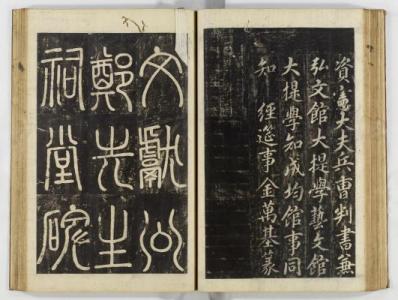 資憲大夫兵曹判書兼
弘文館大提學藝文館
大提學知成均館事同
知 經筵事金萬基篆
文獻公
鄭先生
祠堂碑